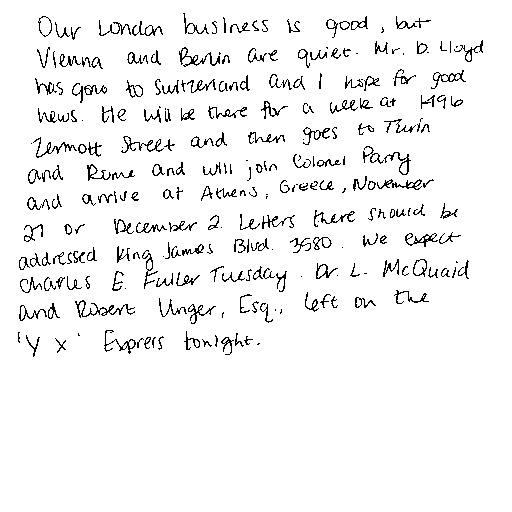 Our London business is good, but
Vienna and Berlin are quiet. Mr. D. Lloyd
has gone to Switzerland and I hope for good
news. He will be there for a week at 1496
Zermott Street and then goes to Turin
and Rome and will join Colonel Parry
and arrive at Athens, Greece, November
27 or December 2. Letters there should be
addressed King James Blvd. 3580. We expect
Charles E. Fuller Tuesday. Dr. L. McQuaid
and Robert Unger, Esq., left on the
'Y X' Express tonight.